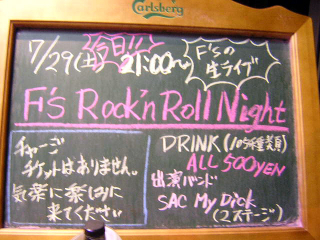 Carlsberg
今日!!
7/29(土) 21:00〜
F'sの
生ライブ
F's Rock'n Roll Night
チャージ
チケットはありません。
気楽に楽しみに
来てください
DRINK
ALL 500YEN
出演バンド
SAC My Dick
(2ステージ)